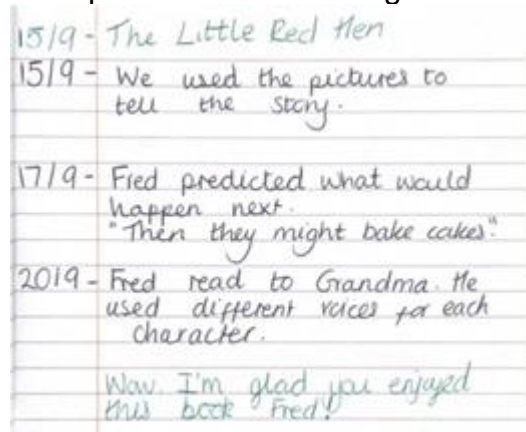 15/9 - The Little Red Hen
15/9 - We used the pictures to
tell the story.
17/9 - Fred predicted what would
happen next.
"Then they might bake cakes."
20/9 - Fred read to Grandma. He
used different voices for each
character.
Wow. I'm glad you enjoyed
this book Fred!